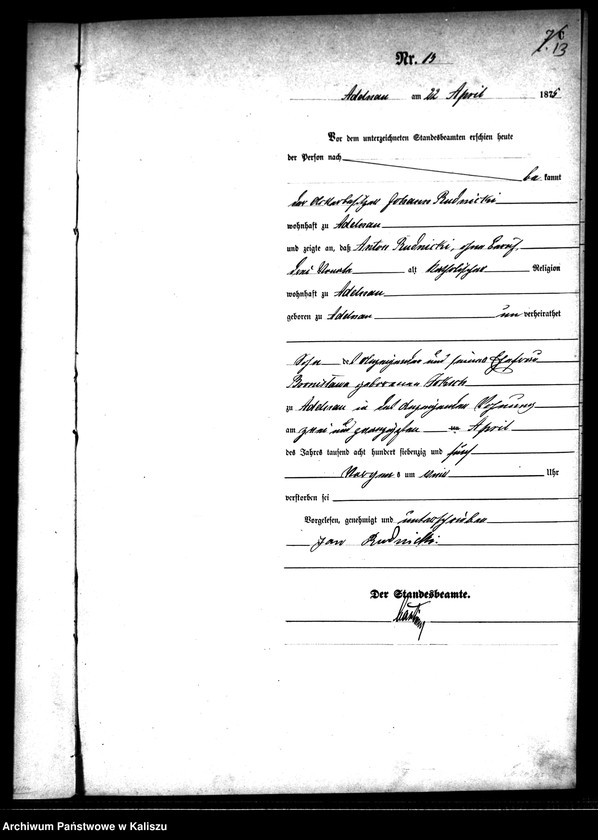 76
13
Nr. 13
Adelnau am 22 April 1875
Vor dem unterzeichneten Standesbeamten erschien heute
der Person nach
be kannt
der Johann Rudnicki
wohnhaft zu Adelnau
und zeigte an, daß Anton Rudnicki, ohne Beruf,
drei Monate alt katholischer Religion
wohnhaft zu Adelnau
geboren zu Adelnau un verheirathet
Sohn des Anzeigenden und seiner Ehefrau
Bronislawa geborenen
zu Adelnau in des Anzeigenden Wohnung
am zwei und zwanzigsten April
des Jahres tausend acht hundert siebenzig und fünf
Morgens um Uhr
verstorben sei
Vorgelesen, genehmigt und unterschrieben
Jan Rudnicki.
Der Standesbeamte.
Archiwum Państwowe w Kaliszu